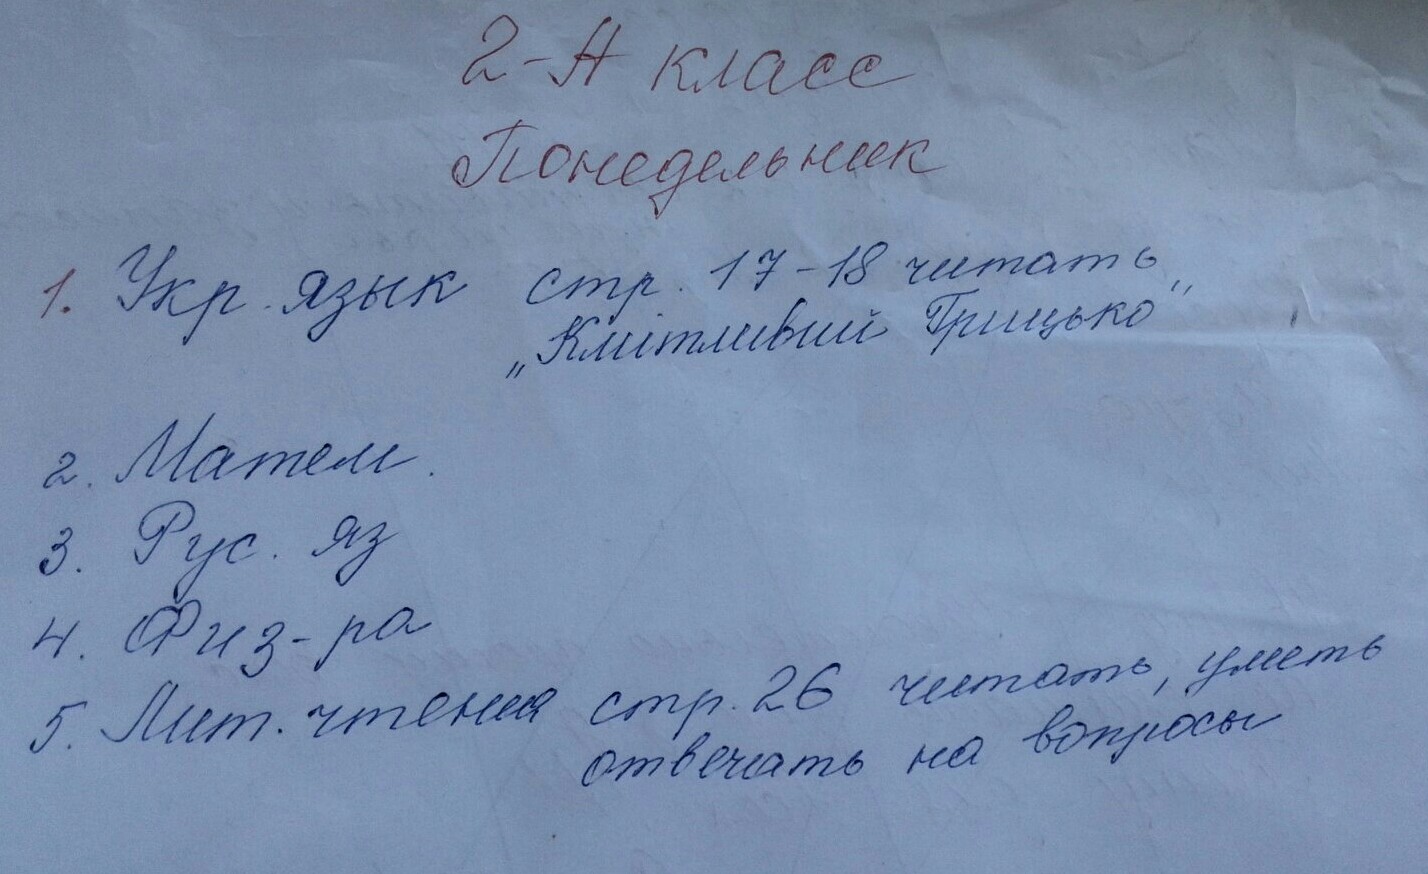 2-А класс
Понедельник
1. Укр. язык стр. 17-18 читать
„Кмітливий Грицько"
2. Матем.
3. Рус. яз
4. Физ-ра
5. Лит. чтения стр. 26 читать, уметь
отвечать на вопросы